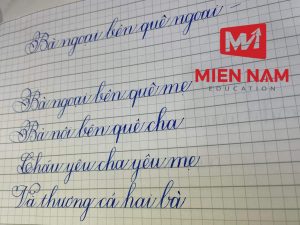 Bà ngoại bên quê ngoại
MIEN NAM
EDUCATION
Bà ngoại bên quê mẹ
Bà nội bên quê cha
Cháu yêu cha yêu mẹ
Và thương cả hai bà